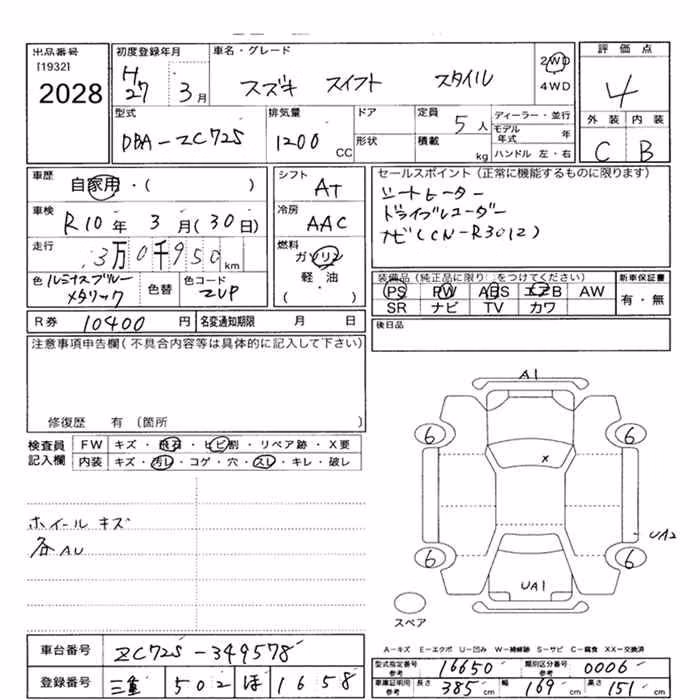 出品番号 初度登録年月 車名・グレード 評価点
[1932] 2WD
2028 H27 3月 スズキ スイフト スタイル 4WD 4
型式 排気量 ドア 定員 5人 ディーラー・並行 外装 内装
DBA-ZC72S 1200CC 形状 積載 kg モデル年式 年 C B
ハンドル 左・右
車歴 自家用・( ) シフト AT セールスポイント(正常に機能するものに限ります)
車検 R10年 3月(30日) 冷房 AAC シートヒーター
ドライブレコーダー
走行 3万0千950km 燃料 ガソリン ナビ(CN-R301Z)
軽・油
色 ルミナスブルーメタリック 色替 色コード ZUP ( )
装備品(純正品に限り をつけてください) 新車保証書
PS PW ABS エアB AW 有・無
SR ナビ TV カワ
R券 10400円 名変通知期限 月 日 後日品
注意事項申告欄(不具合内容等は具体的に記入して下さい)
修復歴 有 (箇所 )
検査員記入欄 FW キズ・飛石・ヒビ割・リペア跡・X要
内装 キズ・汚レ・コゲ・穴・スレ・キレ・破レ
ホイールキズ
各AU
A1
6 6
x
UA2
6 6
UA1
スペア
A-キズ E-エクボ U-凹み W-補修跡 S-サビ C-腐食 XX-交換済
車台番号 ZC72S-349578
型式指定番号 参考 16650 類別区分番号 参考 0006
登録番号 三重 502 ほ 1658
車庫証明用 参考 長さ 385cm 幅 169cm 高さ 151cm